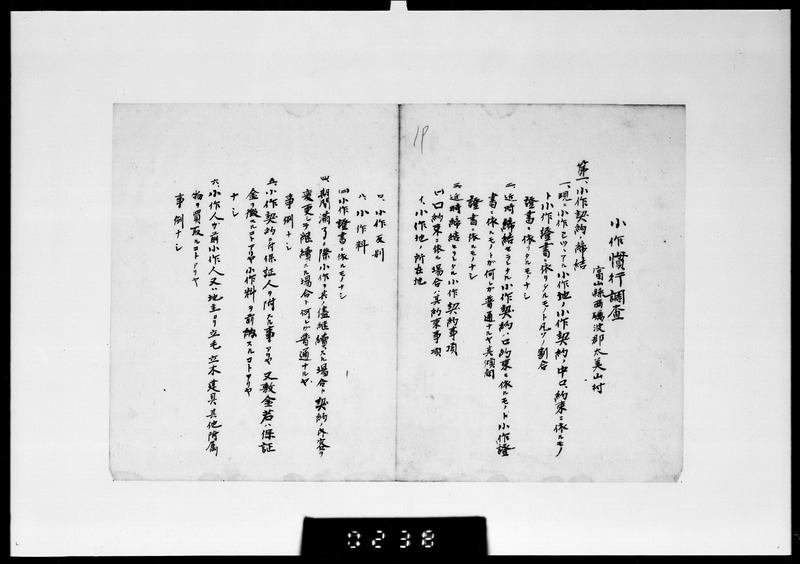 小作慣行調査
富山縣西礪波郡太美山村
第一、小作契約ノ締結
一、現ニ小作シツヽアル小作地ノ小作契約ノ中口約束ニ依ルモノ
ト小作證書ニ依リタルモノト凡ソノ割合
證書ニ依リタルモノナシ
二、近時締結セラレタル小作契約ハ口約束ニ依ルモノト小作證
書ニ依ルモノトが何レが普通ナルヤ其傾向
證書ニ依ルモノナシ
三、近時締結セラレタル小作契約事項
(一)口約束ニ依ル場合ハ其約束事項
イ、小作地ノ所在地
19
ロ、小作反別
ハ、小作料
(二)小作證書ニ依ルモノナシ
四、期間満了ノ際小作ヲ其ノ儘継續スル場合ト契約ノ内容ヲ
変更シテ継續スル場合ト何レが普通ナルヤ
事例ナシ
五、小作契約ニ付保証人ヲ附スル事アリヤ又敷金若ハ保証
金ヲ徴スルコトアリヤ小作料ヲ前納スルコトアリヤ
ナシ
六、小作人が前小作人又ハ地主ヨリ立毛立木建具其他附属
物ヲ買取ルコトアリヤ
事例ナシ
0238